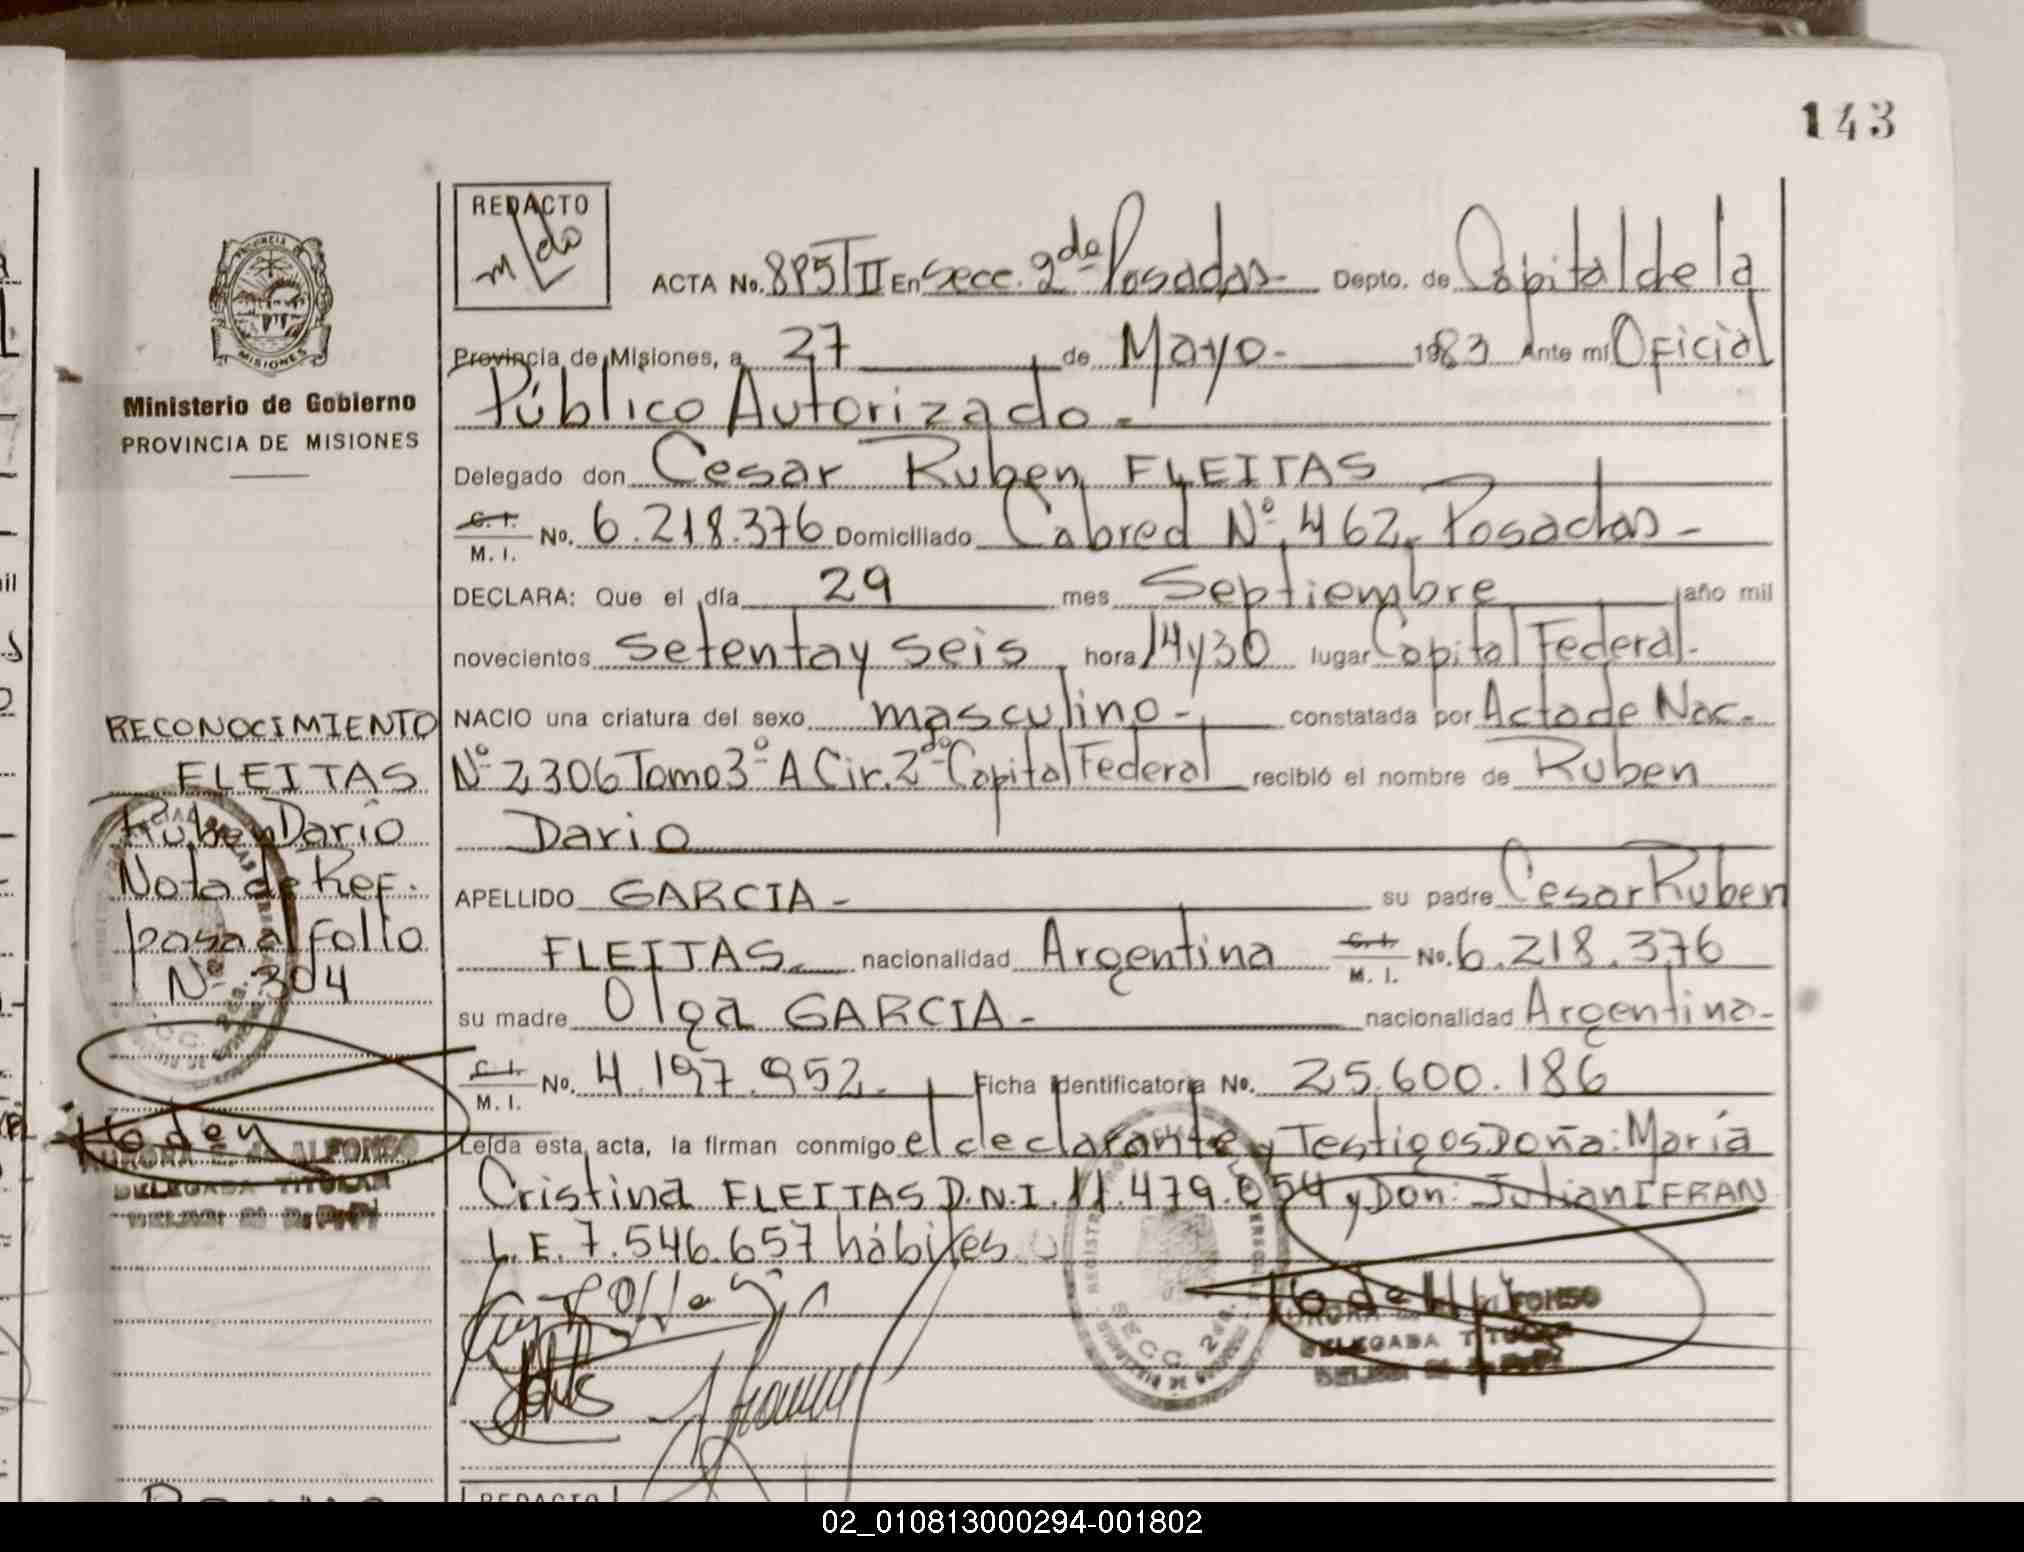 143
REDACTO
ACTA No. 895 TII En Secc. 2da Posadas - Depto. de Capital de la
Provincia de Misiones, a 27 de Mayo - 1983 Ante mi Oficial
Público Autorizado -
Delegado don Cesar Ruben FLEITAS
C. I. M. I. No. 6.218.376 Domiciliado Cabred Nº 462, Posadas -
DECLARA: Que el día 29 mes Septiembre año mil
novecientos setenta y seis hora 14 y 30 lugar Capital Federal.
NACIO una criatura del sexo masculino - constatada por Acta de Nac.
Nº 2306 Tomo 3º A Cir. 2da Capital Federal recibió el nombre de Ruben
Dario
APELLIDO GARCIA - su padre Cesar Ruben
FLEITAS. nacionalidad Argentina C. I. M. I. No. 6.218.376
su madre Olga GARCIA - nacionalidad Argentina -
C. I. M. I. No. 4.197.952. Ficha Identificatoria No. 25.600.186
Leída esta acta, la firman conmigo el declarante y Testigos Doña: María
Cristina FLEITAS D.N.I. 11.479.054 y Don: Julian IFRAN
L.E. 7.546.657 hábiles
SECC. 2da.
ALFONSO
DELEGADA TITULAR
PROVINCIA DE
MISIONES
Ministerio de Gobierno
PROVINCIA DE MISIONES
RECONOCIMIENTO
FLEITAS
Ruben Dario
Nota de Ref.
pasa al Folio
Nº 304
AURORA ALFONSO
DELEGADA TITULAR
REDACTO
02_010813000294-001802